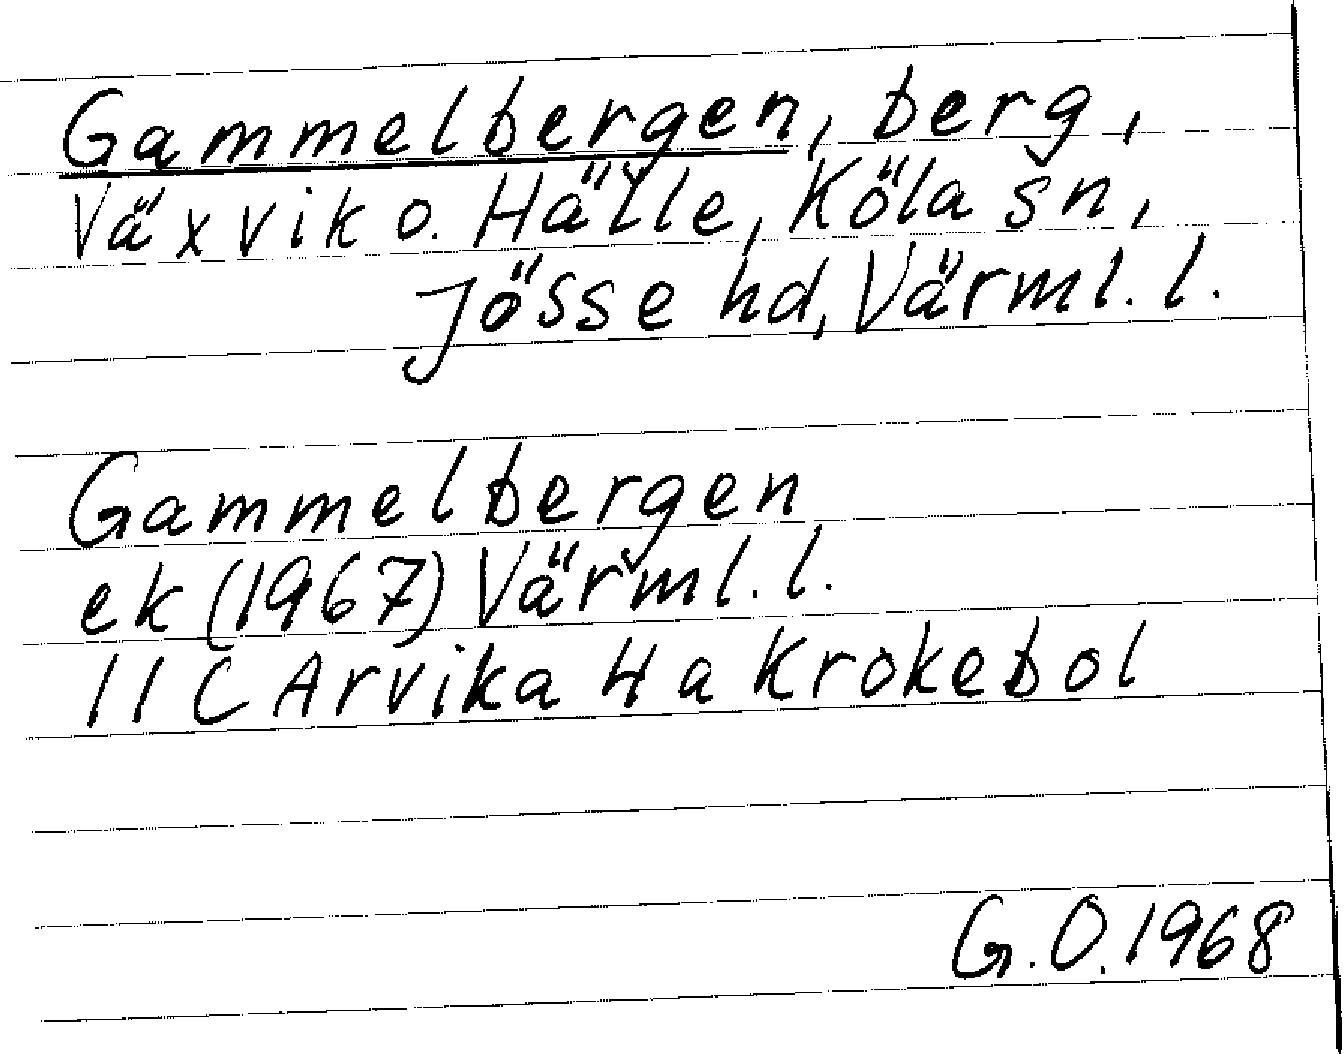 Gammelbergen, berg,
Växvik o. Hälle, Köla sn,
Jösse hd, Värml. l.
Gammelbergen
ek (1967) Värml. l.
11 C Arvika 4 a Krokebol
G. O. 1968